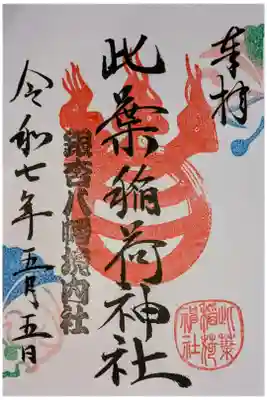 奉拝
此葉稲荷神社
銀杏八幡境内社
令和七年五月五日
此葉
稲荷
神社